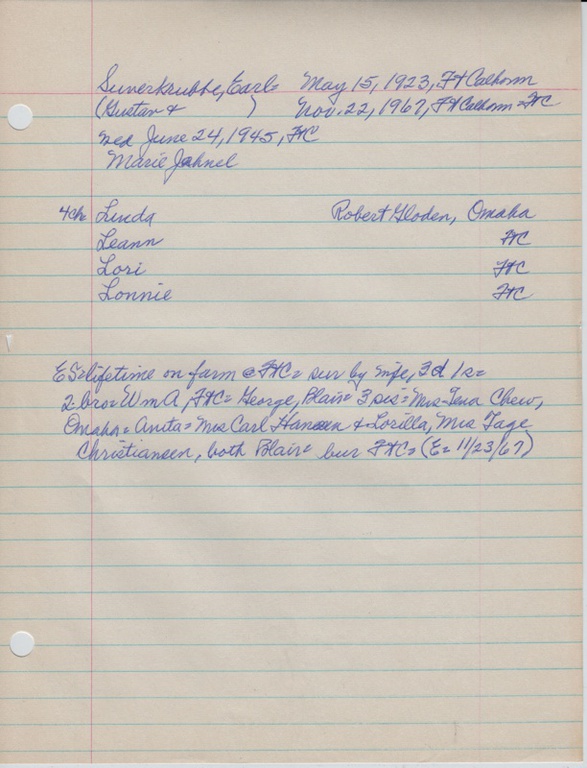 Suverkrubbe, Earl= May 15, 1923, Ft Calhoun
(Gustav & ) Nov. 22, 1967, Ft Calhoun=FtC
wed June 24, 1945, FtC
Marie Jahnel
4ch Linda Robert Gloden, Omaha
Leann FtC
Lori FtC
Lonnie FtC
ES=lifetime on farm @ FtC= sur by wife, 3d 1s=
2-bro=Wm A, FtC= George, Blair= 3 sis=Mrs Tena Chew,
Omaha= Anita= Mrs Carl Hansen & Lorilla, Mrs Tage
Christiansen, both Blair= bur FtC=(E=11/23/67)